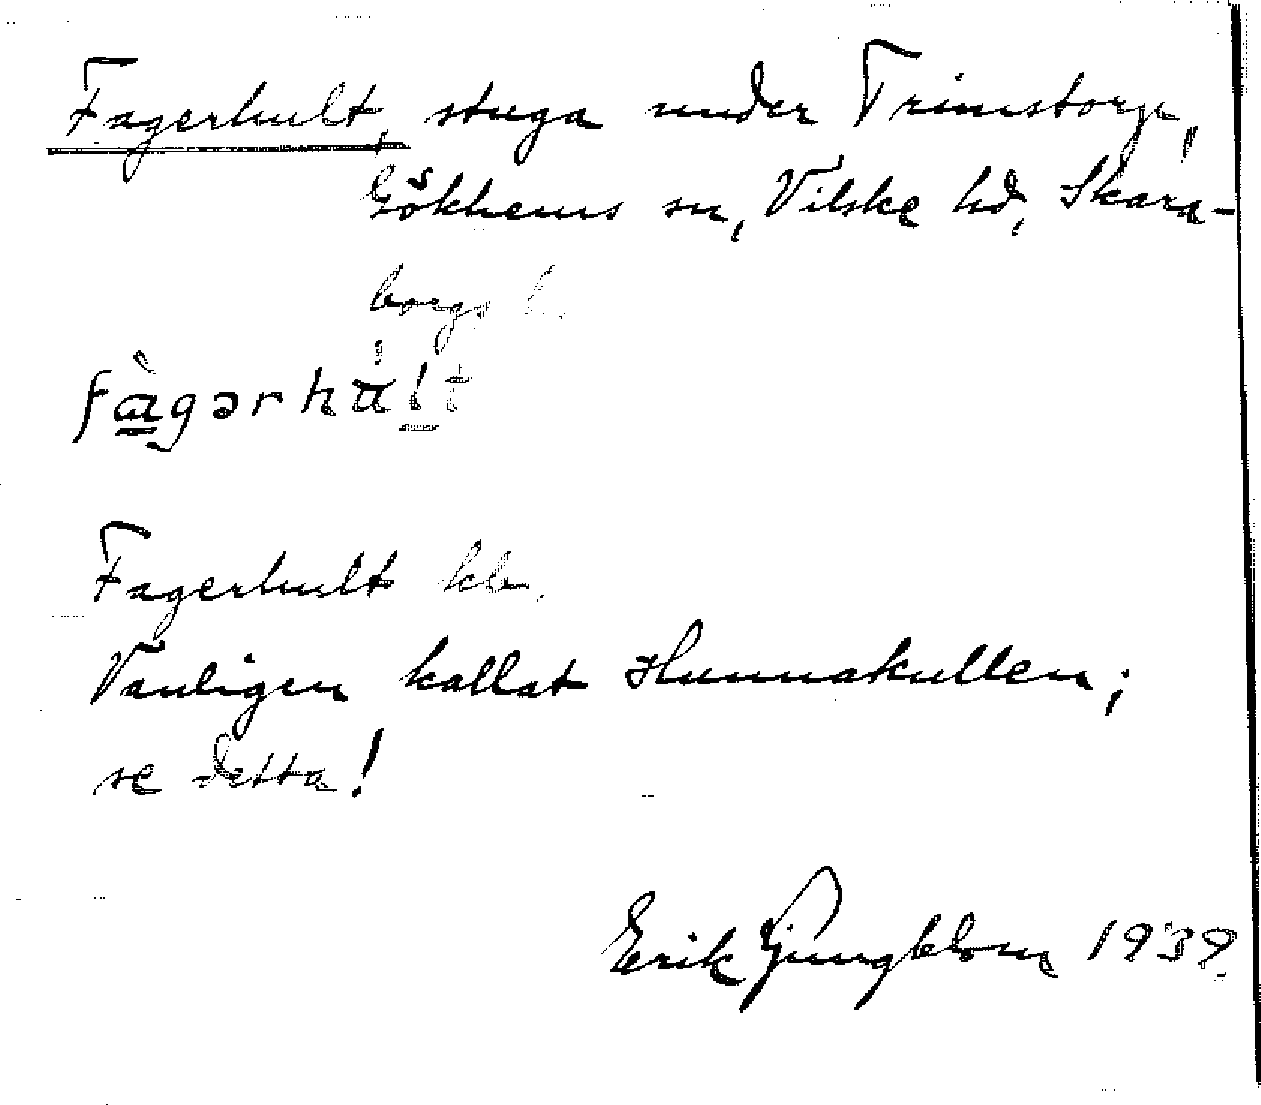 Fagerhult, stuga under Trimstorp,
Gökhems sn, Vilske hd, Skara-
borgs l.
fàgərhu̇lt
Fagerhult kb.
Vanligen kallat Hunnakullen;
se detta!
Erik Ljungblom 1939.